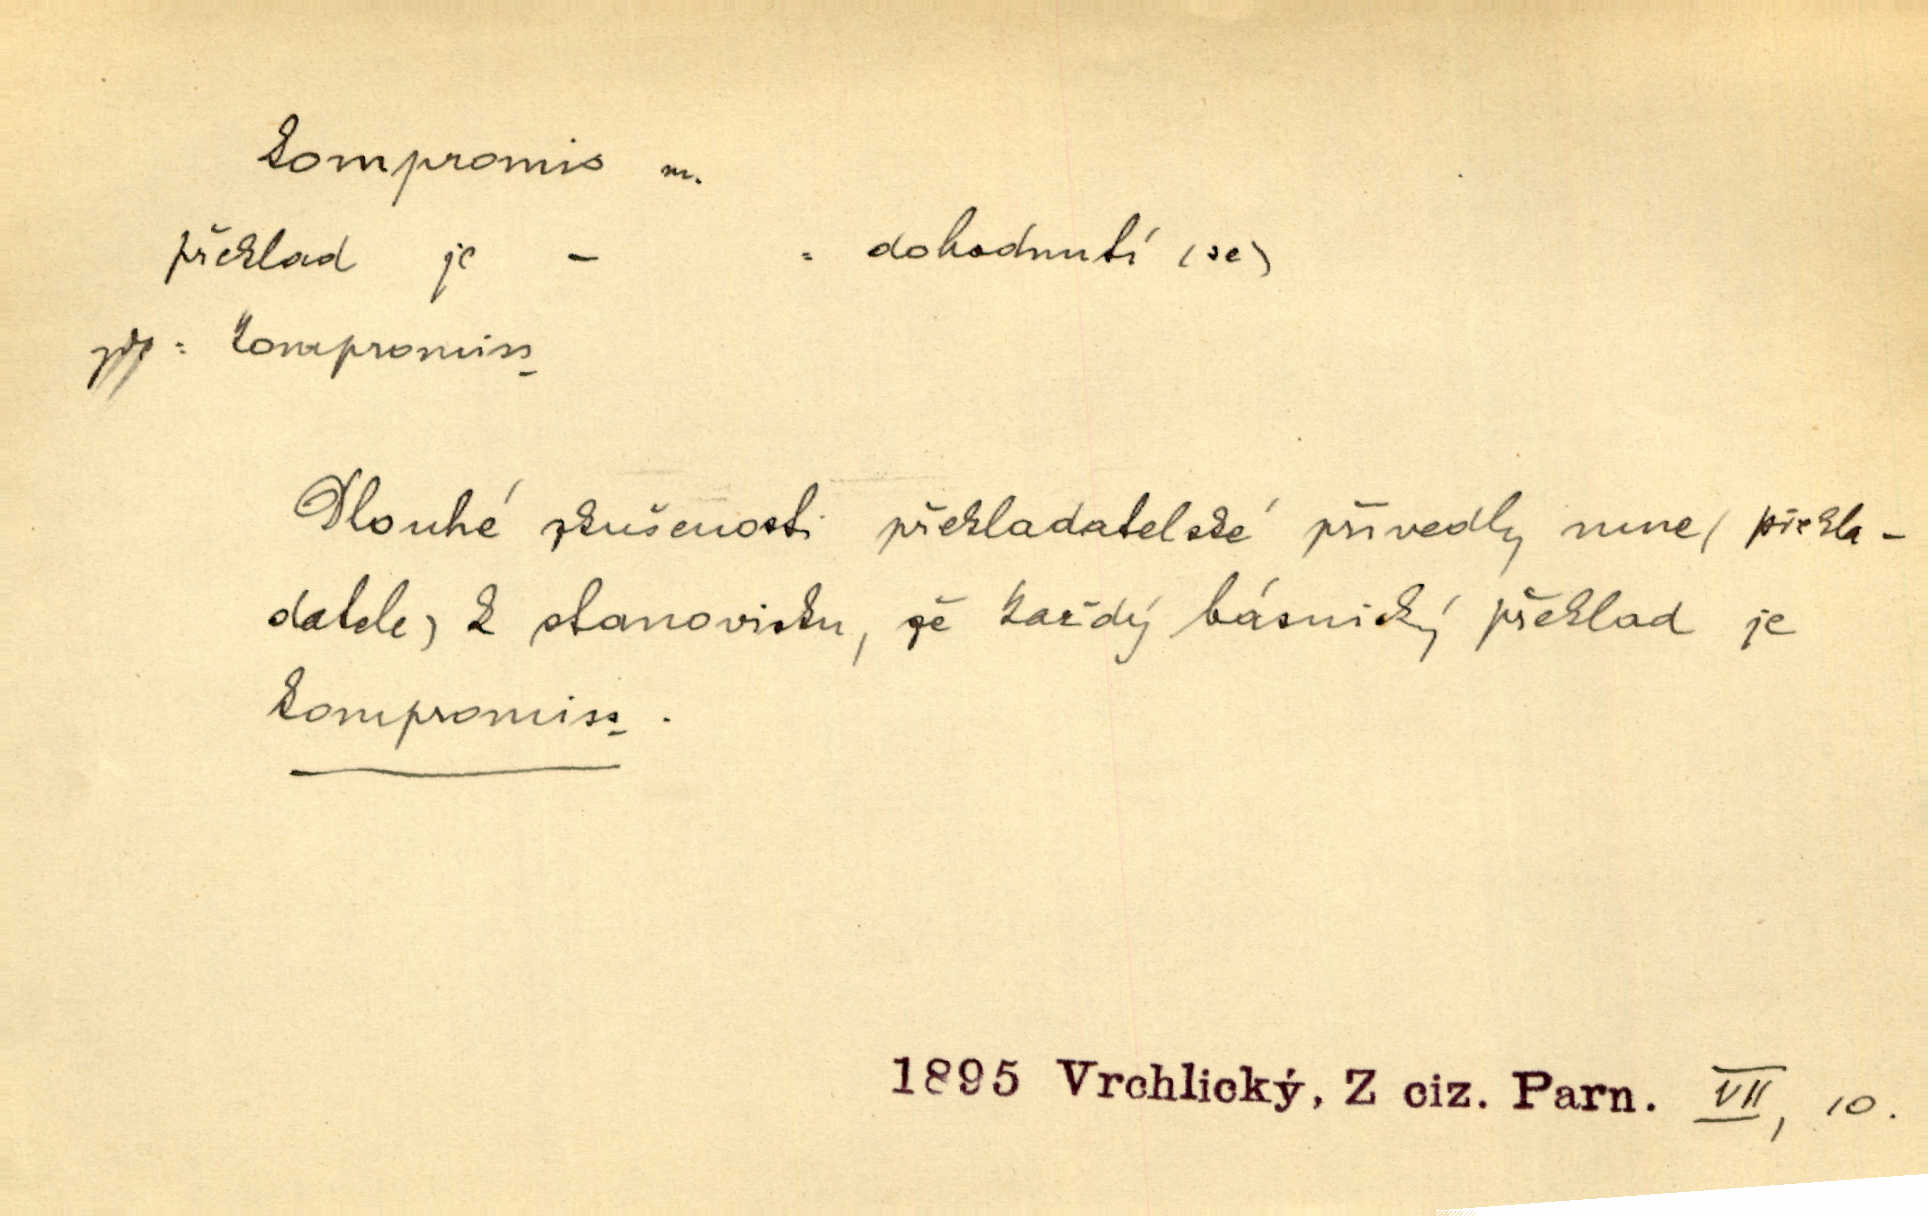 kompromis m.
překlad je – = dohodnutí (se)
zp = kompromiss
Dlouhé zkušenosti překladatelské přivedly mne (překla-
datele) k stanovisku, že každý básnický překlad je
kompromiss.
1895 Vrchlický, Z ciz. Parn. VII, 10.